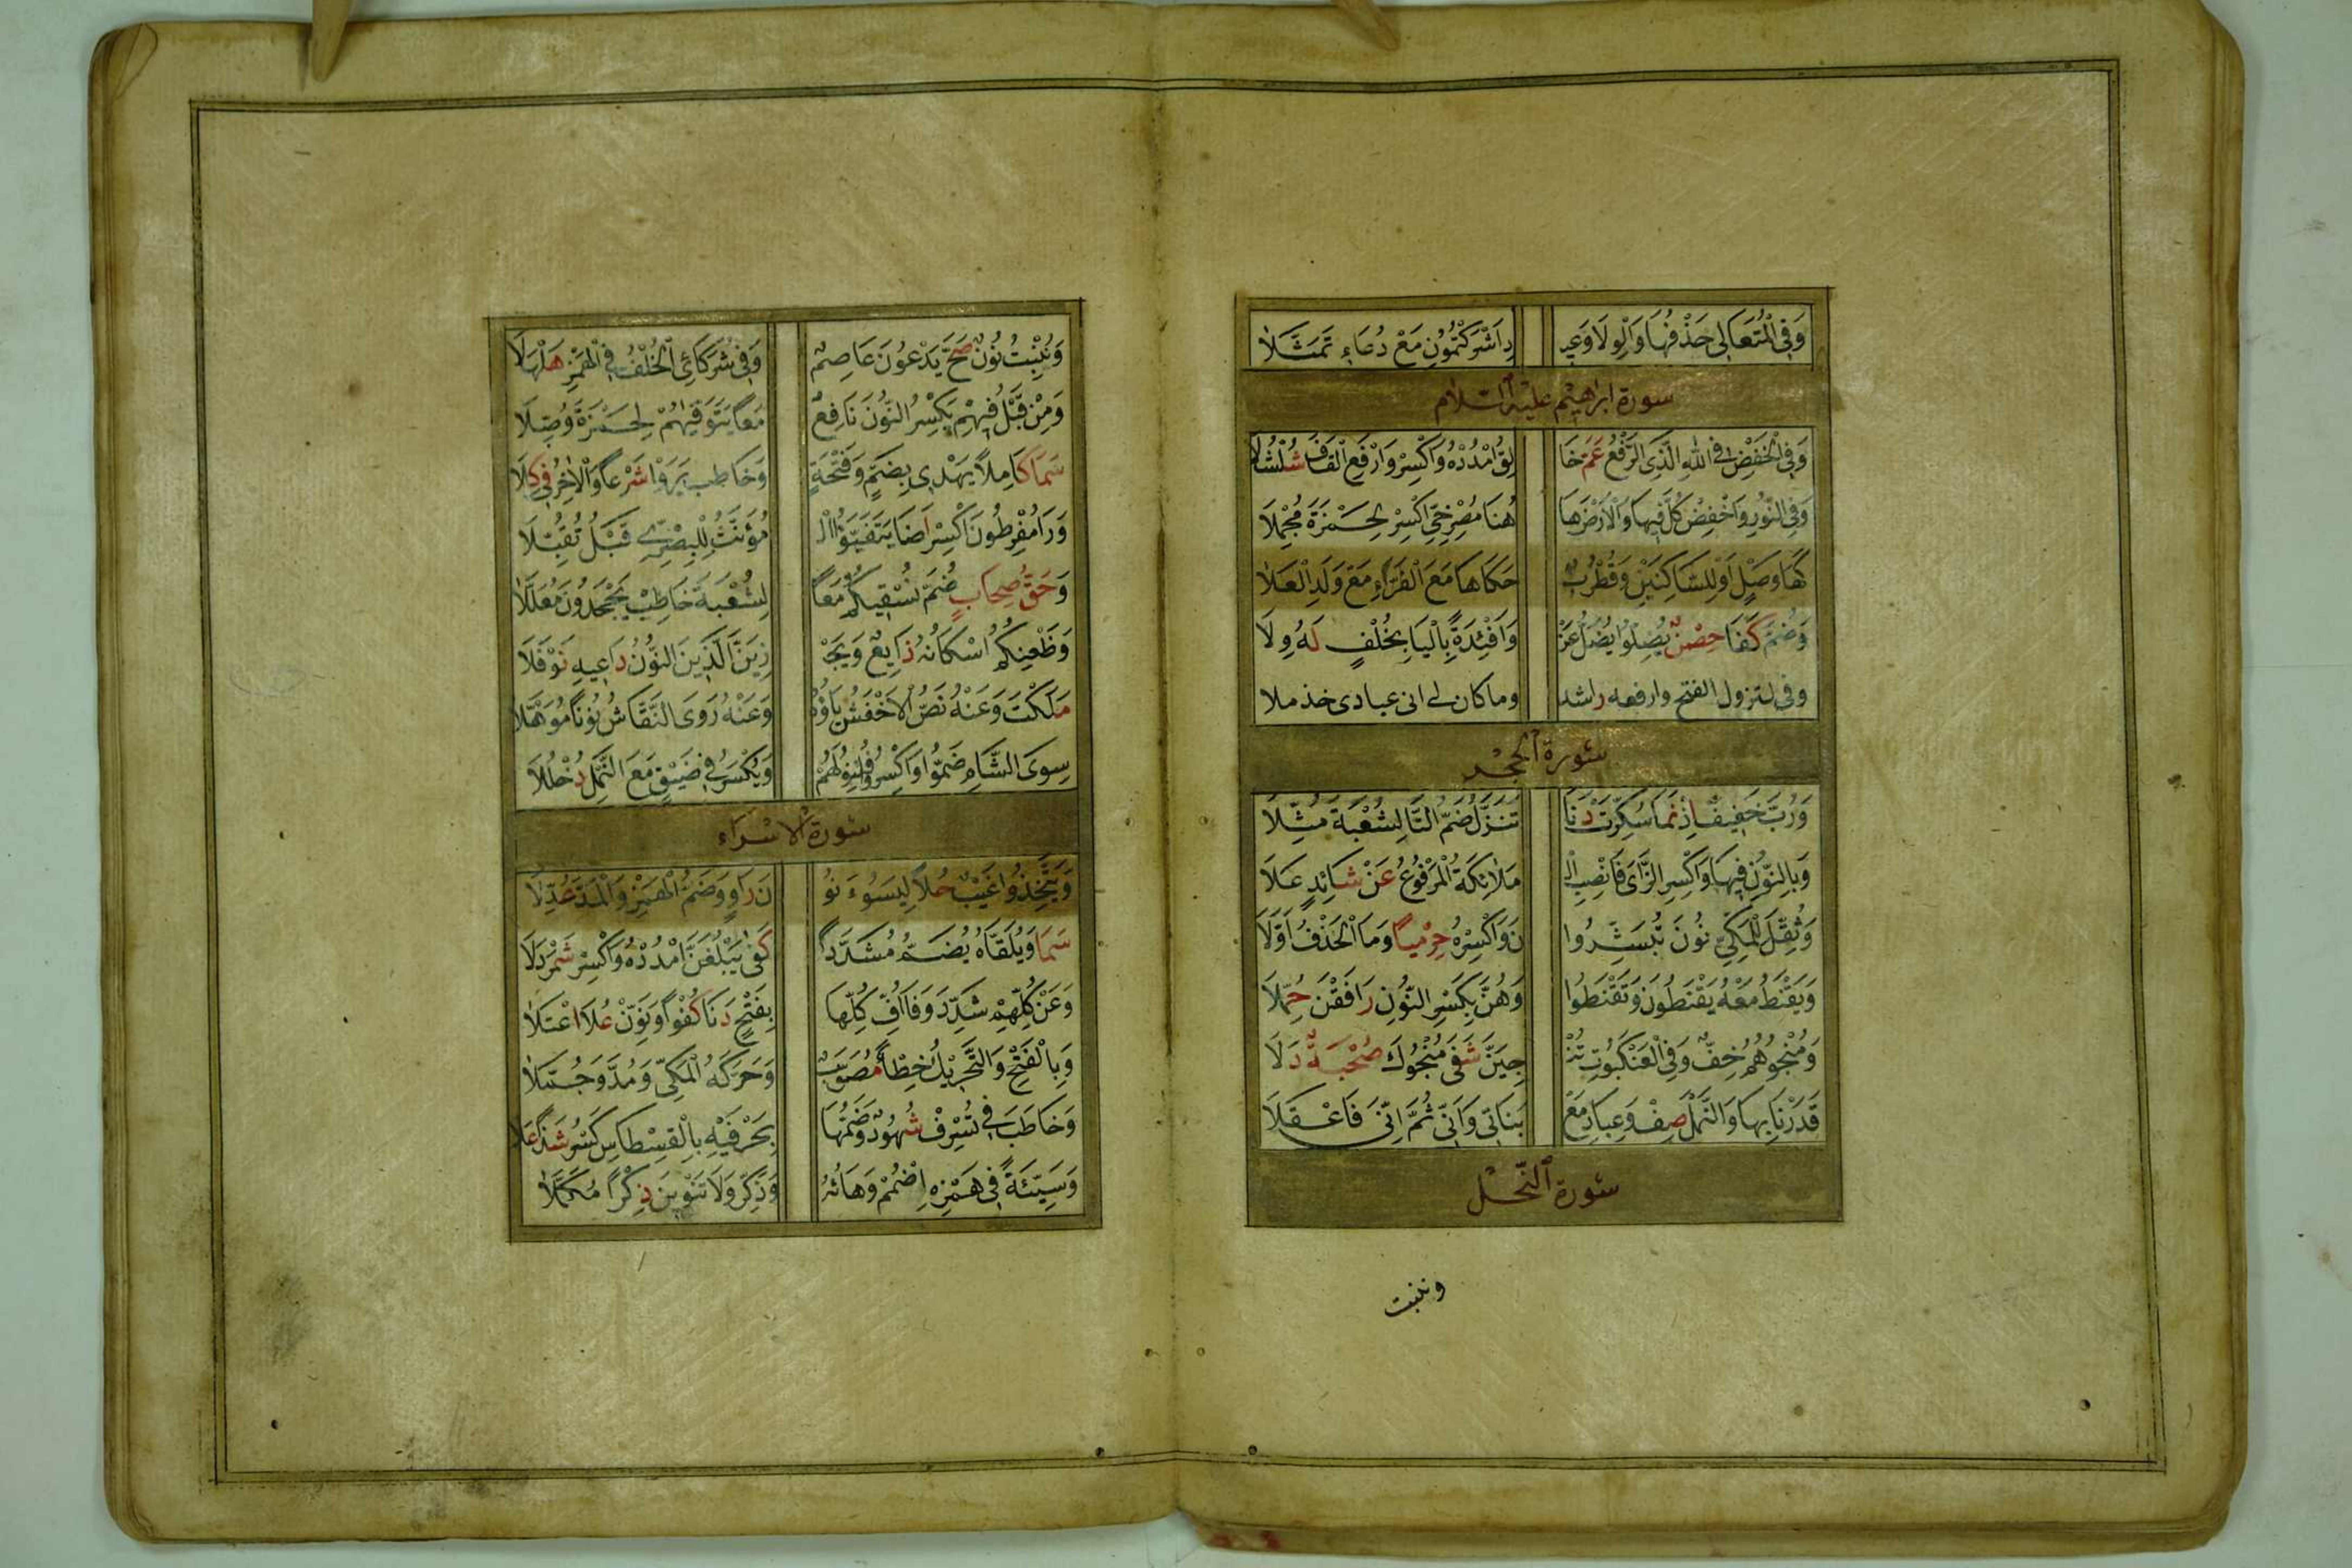 وَفِي الْمُتَعَالِي حَذْفُهَا وَالْوِلَا وَعِيـ دِ اَشْرَكْتُمُونِ مَعْ دُعَاءِ تَمَثَّلَا
سورة ابراهيم عليه السلام
وَفِي الْخَفْضِ فِي اللّٰهِ الَّذِي الرَّفْعُ عَمَّ خَا لِقُ امْدُدْهُ وَاكْسِرْ وَارْفَعِ الْقَافَ شُلْشُلَا
وَفِي النُّورِ وَاخْفِضْ كُلَّ فِيهَا وَالْاَرْضَ هَا هُنَا مُصْرِخِيَّ اكْسِرْ لِحَمْزَةَ مُجْمِلَا
كَهَا وَصْلٍ اَوْ لِلسَّاكِنَيْنِ وَقُطْرُبٌ حَكَاهَا مَعَ الْفَرَّاءِ مَعْ وَلَدِ الْعَلَا
وَضُمَّ كَفَا حِصْنٌ يُضِلُّوا يُضِلَّ عَنْ وَاَفْئِدَةً بِالْيَا بِخُلْفٍ لَهُ وِلَا
وفي لتزول الفتح وارفعه راشدا وما كان لي اني عبادي خذ ملا
سورة الحجر
وَرُبَّ خَفِيفٌ اِذْ نَمَا سُكِّرَتْ دَنَا تَنَزَّلُ ضَمُّ التَّا لِشُعْبَةَ مُثِّلَا
وَبِالنُّونِ فِيهَا وَاكْسِرِ الزَّايَ فَانْصِبِ الْـ مَلَائِكَةُ الْمَرْفُوعُ عَنْ شَائِدٍ عَلَا
وَثُقِّلَ لِلْمَكِّيِّ نُونُ تُبَشِّرُو نَ وَاكْسِرْهُ حِرْمِيًّا وَمَا الْحَذْفُ اَوَّلَا
وَيَقْنَطُ مَعْهُ يَقْنَطُونَ وَتَقْنَطُوا وَهُنَّ بِكَسْرِ النُّونِ رَافَقْنَ حُمَّلَا
وَمُنْجُوهُمُ خِفٌّ وَفِي الْعَنْكَبُوتِ تُنْـ جِيَنَّ شَفَى مُنْجُوكَ صُحْبَةٌ دَلَا
قَدَرْنَا بِهَا وَالنَّمْلِ صِفْ وَعِبَادِ مَعْ بَنَاتِي وَاَنِّي ثُمَّ اِنِّي فَاعْقِلَا
سورة النحل
وننبت
وَنُنْبِتُ نُونٌ صَحَّ يَدْعُونَ عَاصِمٌ وَفِي شُرَكَائِيَ الْخُلْفُ فِي الْهَمْزِ هَلْهَلَا
وَمِنْ قَبْلُ فِيهِمْ يَكْسِرُ النُّونَ نَافِعٌ مَعًا يَتَوَفَّيهُمْ لِحَمْزَةَ وُصِلَا
سَمَا كَامِلًا يَهْدِي بِضَمٍّ وَفَتْحَةٍ وَخَاطِبْ يَرَوْا شَرْعًا وَالْاٰخِرُ فِي كِلَا
وَرَا مُفْرِطُونَ اكْسِرْ اَضَا يَتَفَيَّؤُا الْـ مُؤَنَّثُ لِلْبَصْرِيِّ قَبْلُ تُقُبِّلَا
وَحَقُّ صِحَابٍ ضُمَّ نُسْقِيكُمُ مَعًا لِشُعْبَةَ خَاطِبْ يَجْحَدُونَ مُعَلَّلَا
وَظَعْنِكُمُ اِسْكَانُهُ ذَايِعٌ وَيَجْـ زِيَنَّ الَّذِينَ النُّونُ دَاعِيهِ نَوْفَلَا
مَلَكْتَ وَعَنْهُ نَصَّ الْاَخْفَشُ يَاؤُهُ وَعَنْهُ رَوَى النَّقَّاشُ نُونًا مُوَهَّلَا
سِوَى الشَّامِ ضَمُّوا وَاكْسِرُوا فُتِنُوا لَهُمْ وَيُكْسَرُ فِي ضَيْقٍ مَعَ النَّمْلِ دُخْلُلَا
سورة الاسراء
وَيَتَّخِذُوا غَيْبٌ حَلَا لِيَسُوءَ نُو نَ رَاوٍ وَضَمُّ الْهَمْزِ وَالْمَدِّ عُدِّلَا
سَمَا وَيُلَقَّاهُ يُضَمُّ مُشَدَّدًا كَفَى يَبْلُغَنَّ امْدُدْهُ وَاكْسِرْ شَمَرْدَلَا
وَعَنْ كُلِّهِمْ شَدِّدْ وَفَا اُفِّ كُلِّهَا بِفَتْحٍ دَنَا كُفْوًا وَنَوِّنْ عَلَا اعْتَلَا
وَبِالْفَتْحِ وَالتَّحْرِيكِ خِطْأً مُصَوَّبٌ وَحَرَّكَهُ الْمَكِّي وَمَدَّ وَجَمَّلَا
وَخَاطَبَ فِي تُسْرِفْ شُهُودٌ وَضَمُّهَا بِحَرْفَيْهِ بِالْقِسْطَاسِ كَسْرُ شَذٍ عَلَا
وَسَيِّئَةً فِي هَمْزِهِ اضْمُمْ وَهَائِهِ وَذَكِّرْ وَلَا تَنْوِينَ ذِكْرًا مُكَمَّلَا